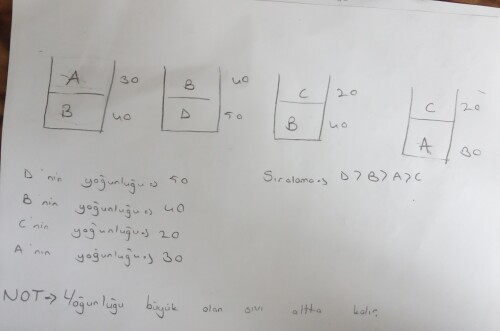 A 30
B 40
B 40
D 50
C 20
B 40
C 20
A 30
D'nin yoğunluğu→ 50
B'nin yoğunluğu→ 40
C'nin yoğunluğu→ 20
A'nın yoğunluğu→ 30
Sıralama→ D > B > A > C
NOT→ Yoğunluğu büyük olan sıvı altta kalır.